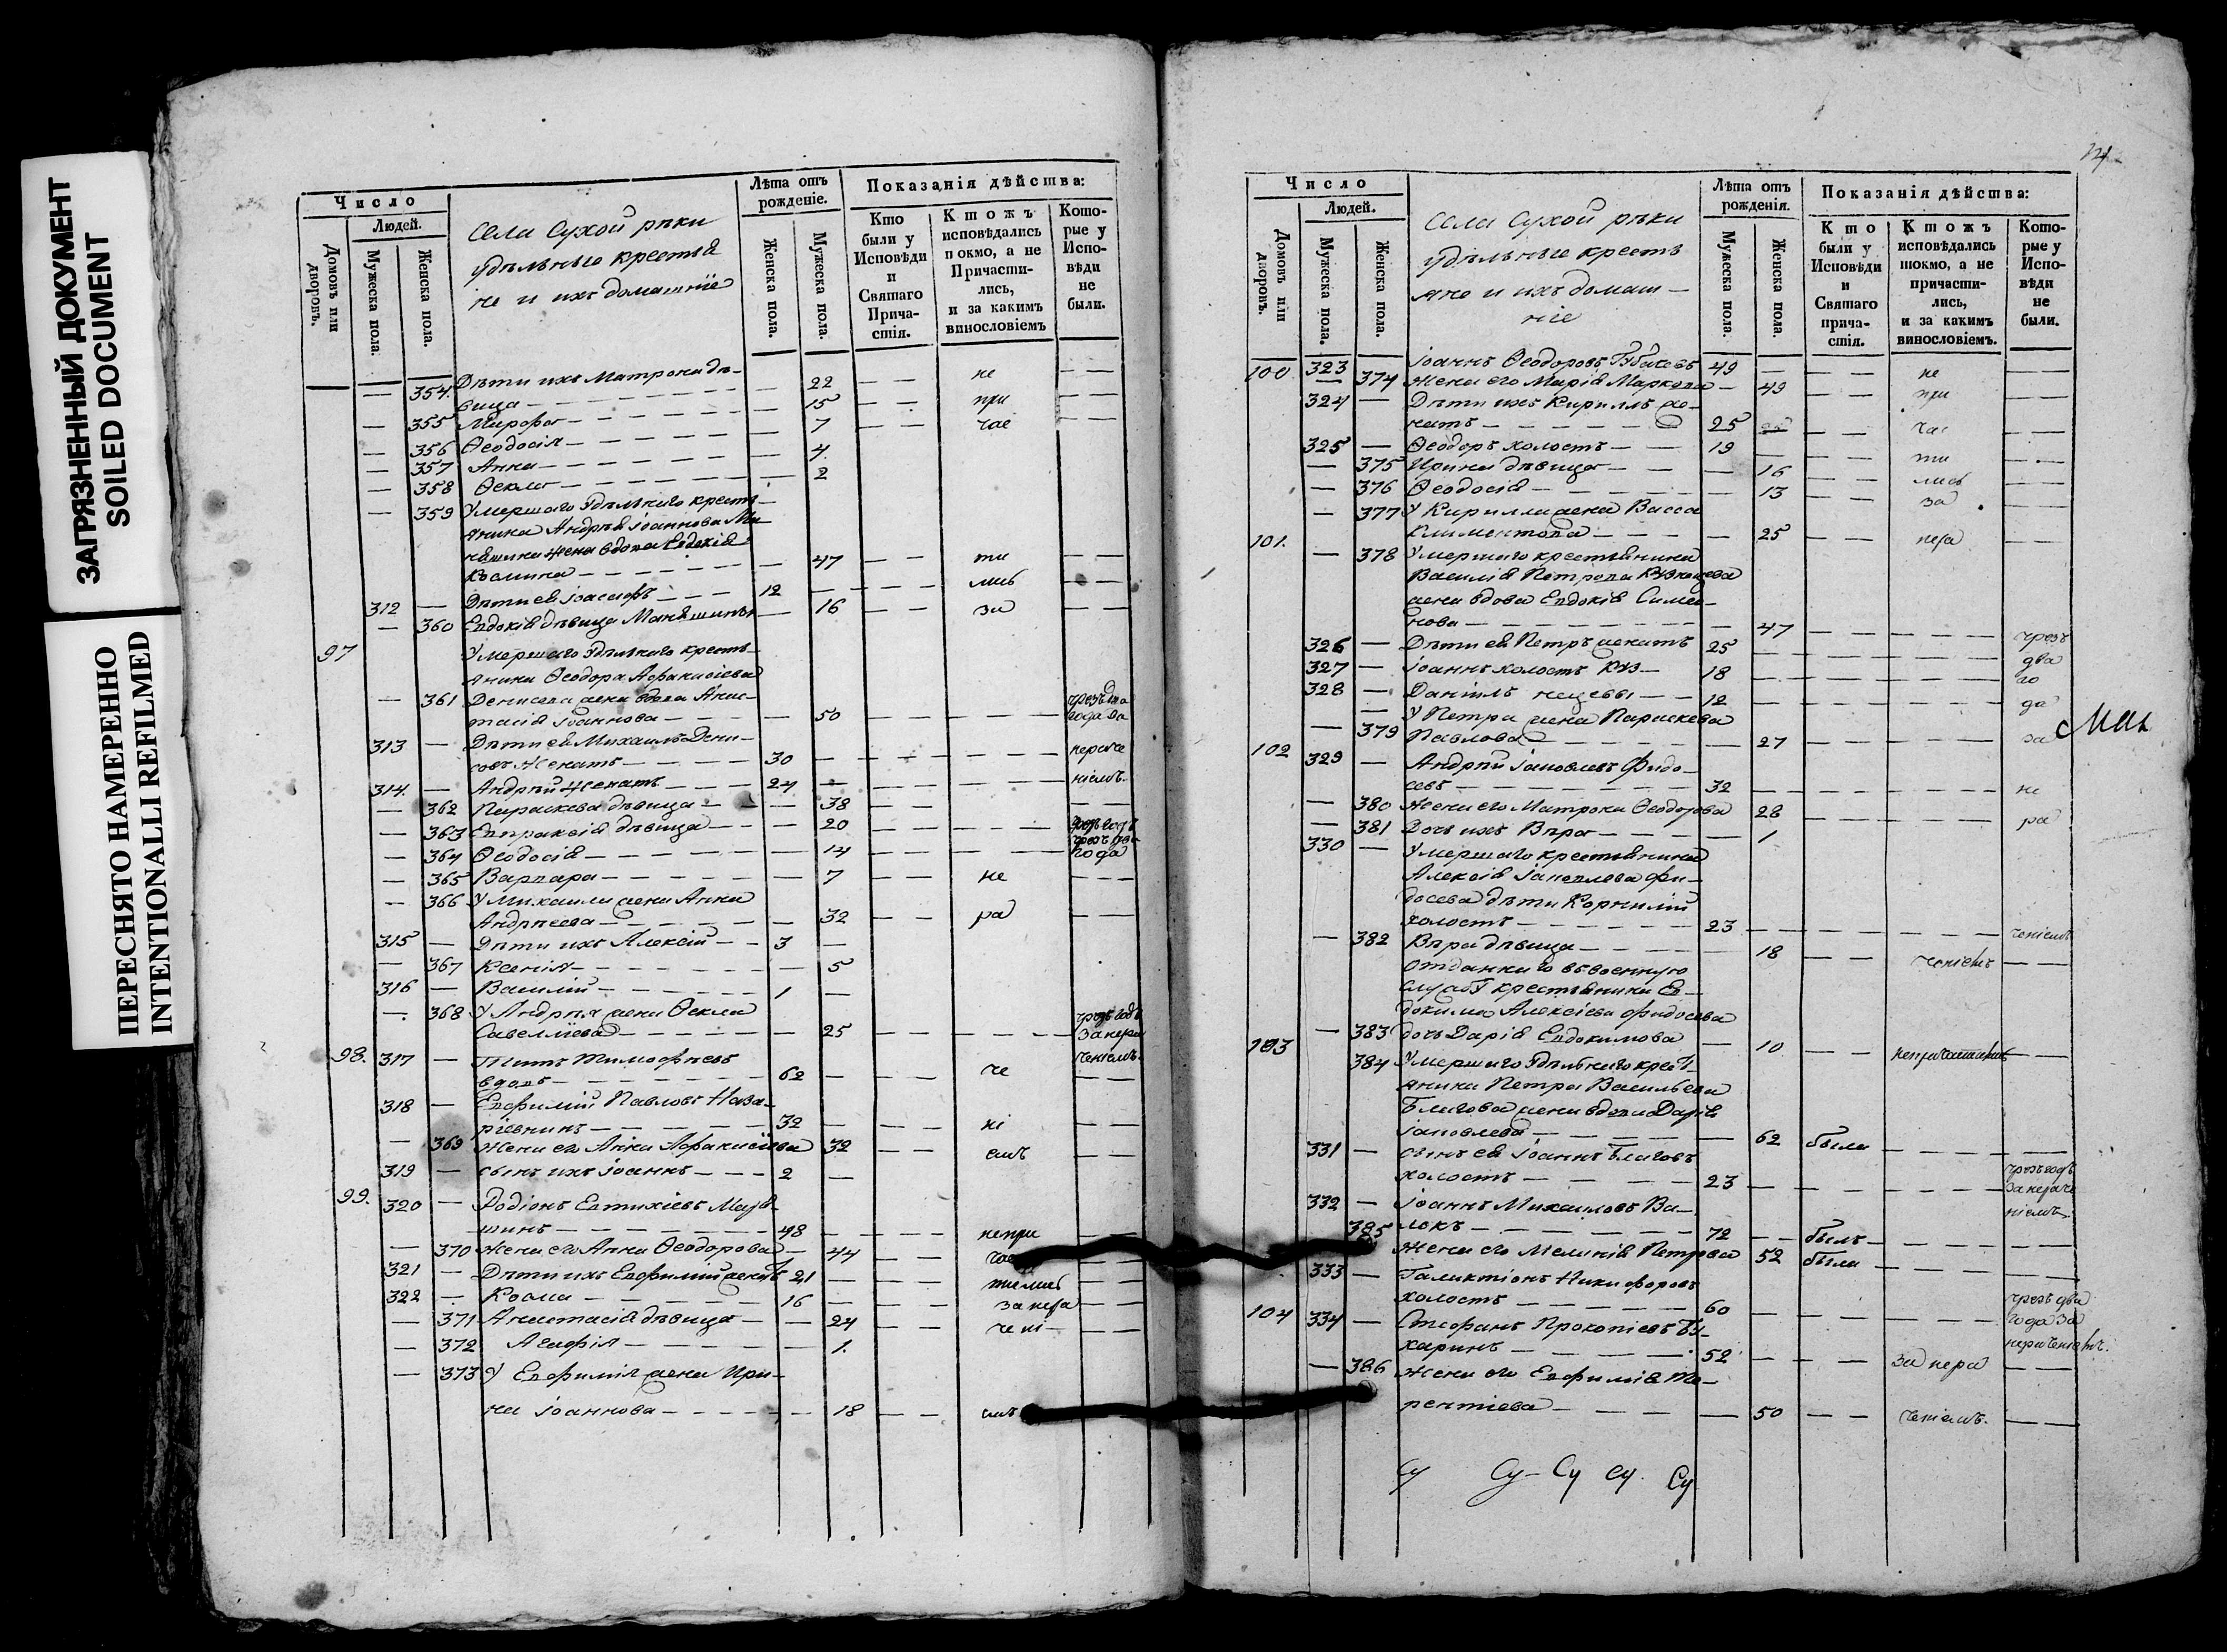 ЗАГРЯЗНЕННЫЙ ДОКУМЕНТ
SOILED DOCUMENT
ПЕРЕСНЯТО НАМЕРЕННО
INTENTIONALLI REFILMED
Число
Людей.
Домовъ или дворовъ.
Мужеска пола.
Женска пола.
Села Сухой рѣки
удѣльныѣ крестья
не и ихъ домашніе
Лѣта отъ рожденіе.
Женска пола.
Мужеска пола.
Показанія дѣйства:
Кто были у Исповѣди и Святаго Прича- стія.
Ктожъ исповѣдались покмо, а не Причасти- лись, и за какимъ винословіемъ
Кото- рые у Испо- вѣди не были.
Дѣти ихъ Матрона дѣ-
— 354. вица — — 22 — — не — —
— 355 — — 15 — — при — —
— 356 Ѳеодосія — — 7 — — час — —
— 357 Анна — — 4
— 358 Ѳекла — — 2
— 359 Умершаго удѣльнаго кресть-
янина Андрея Іоаннова
жена вдова Евдокія
— — 47 — ти — —
312 — Дѣти ея Іоасафъ — 12 — — лись — —
— 360 Евдокія дѣвица — 16 — — за — —
97 Умершаго удѣльнаго кресть-
янина Ѳеодора Аѳанасіева
— 361 Денисова жена вдова Анас-
тасія Іоаннова — — 50 — — года за
313 — Дѣти ея Михаилъ Дени-
совъ женатъ — 30 — — нераче
314. — Андрей женатъ — 24 — — ніемъ.
— 362 Параскева дѣвица — — 38 — —
— 363 Евпраксія дѣвица — — 20 — —
— 364 Ѳеодосія — — 14 — — года
— 365 Варвара — — 7 — — не — —
— 366 У Михаила жена Анна
Андреева — — 32 — — ра — —
315 — Дѣти ихъ Алексій — 3 —
— 367 Ксенія — — 5
316 — Василій — 1 —
— 368 У Андрея жена Ѳекла
Савелліева — — 25 — — чрезъ годъ
за нера
ченіемъ.
98. 317 — Титъ Тимоѳеевъ
вдовъ — 62 — — — че — —
318 — Евфимій Павловъ Наза-
— 32 — — — ні — —
— 369 Жена его Анна Аѳанасіева 32 — — емъ — —
319 — сынъ ихъ Іоаннъ — 2 —
99. 320 — Родіонъ Евтихіевъ
— 48 — — — непри
— 370 Жена его Анна Ѳеодорова — 44 — — час
321 — Дѣти ихъ Евфимій женатъ 21 — — — тились
322 — Косма — 16 — — — за нера — —
— 371 Анастасія дѣвица — — 24 — — чені — —
— 372 Агафія — — 1.
— 373 У Евфимія жена Ири-
на Іоаннова — — 18 — — емъ
14
Число
Людей.
Домовъ или дворовъ.
Мужеска пола.
Женска пола.
Села Сухой рѣки
удѣльныѣ кресть
яне и ихъ домаш-
ніе
Лѣта отъ рожденія.
Мужеска пола.
Женска пола.
Показанія дѣйства:
Кто были у Исповѣди и Святаго прича- стія.
Ктожъ исповѣдались токмо, а не причасти- лись, и за какимъ винословіемъ.
Кото- рые у Испо- вѣди не были.
100 323 Іоаннъ Ѳеодоровъ 49 — — — не — —
— 374 Жена его Марія Маркова — 49 — — при — —
324 — Дѣти ихъ Кириллъ же-
натъ — 25 — — час — —
325 — Ѳеодоръ холостъ — 19 — — ти — —
— 375 Ирина дѣвица — — 16 — — лись — —
— 376 Ѳеодосія — — 13 — — за — —
— 377 У Кирилла жена Васса
Климентова — — 25 — — нера — —
101. — 378 Умершаго крестьянина
Василія Петрова Кузнецова
жена вдова Евдокія Симео-
нова — — 47 — — чрезъ
326 — Дѣти ея Петръ женатъ 25 — — два
327 — Іоаннъ холостъ Куз- 18 — — го
328 — Даніилъ нецовы — 12 — — да
— 379 У Петра жена Параскева
Павлова — — 27 — — за
Мак
102 329 — Андрей Іаковлевъ Фидо-
севъ — 32 — — не
— 380 Жена его Матрона Ѳеодорова 28 — — ра
— 381 Дочь ихъ Вѣра — — 1
330 — Умершаго крестьянина
Алексія Іаковлева Фи-
досева дѣти Корнилій
холостъ — 23 — — ченіемъ
— 382 Вѣра дѣвица — — 18 — — ченіемъ — —
Отданнаго въ военную
службу крестьянина Ев-
докима Алексіева Фидосева
— 383 дочь Дарія Евдокимова — 10 — —
103 384 Умершаго удѣльнаго крест-
янина Петра Васильева
Благова жена вдова Дарія
Іаковлева — — 62 была — —
331 — сынъ ея Іоаннъ Благовъ
холостъ — 23 — — чрезъ годъ
за нераче
ніемъ.
332 — Іоаннъ Михаиловъ Ва-
локъ — 72 — былъ — —
385 Жена его Меланія Петрова 52 была — —
333 — Галактіонъ Никифоровъ
холостъ — 60 — — чрезъ два
года за
нераченіемъ.
104 334 — Стефанъ Прокопіевъ Бу-
харинъ — 52 — — за нера — —
— 386 Жена его Евфимія Те-
рентіева — — 50 — — ченіемъ. — —
Су Су- Су Су. Су